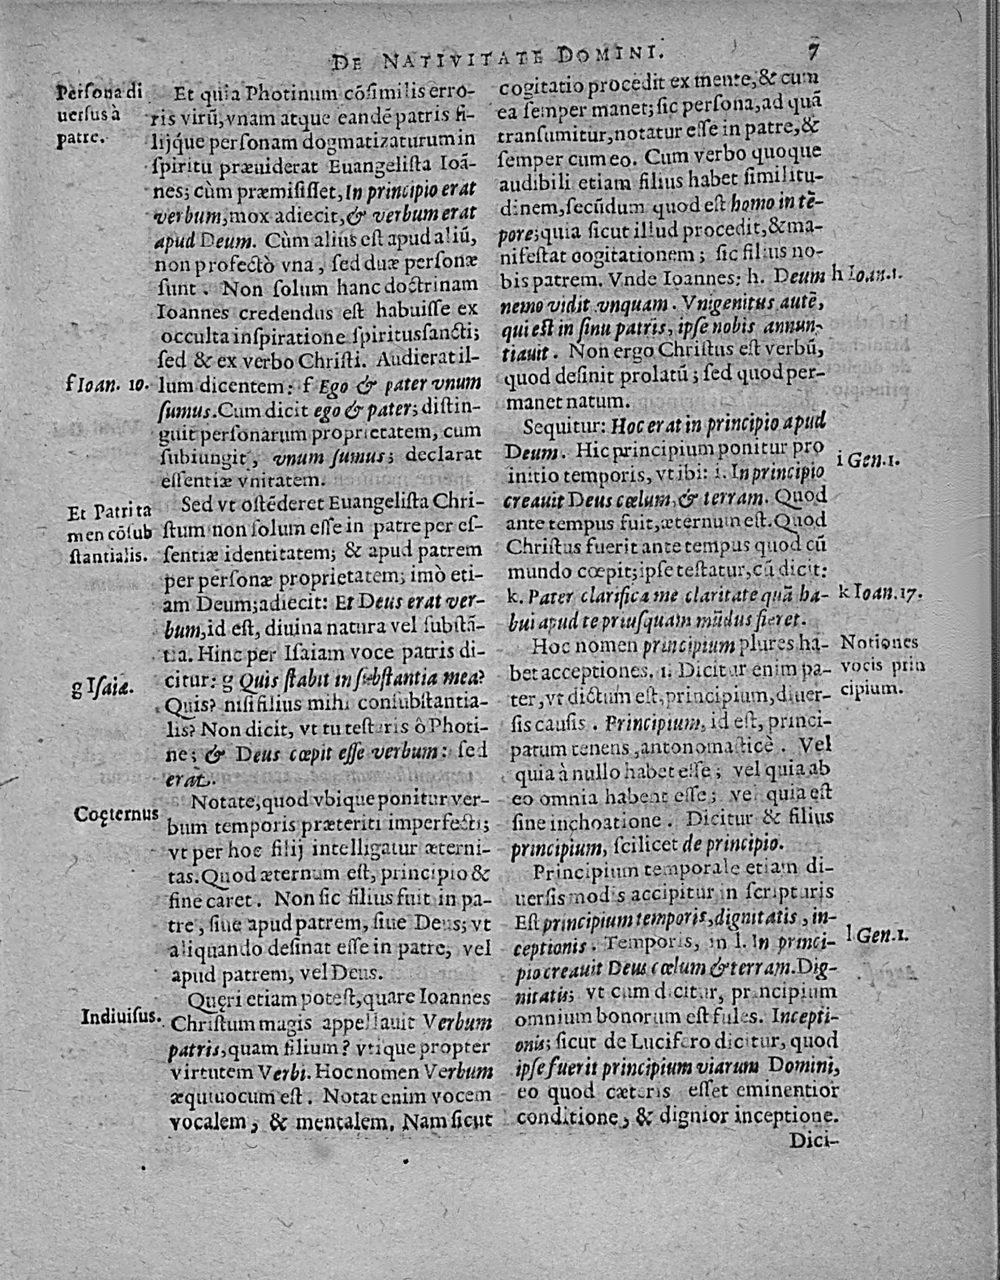 DE NATIVITATE DOMINI. 7
Persona di
uersus à
patre.
Et quia Photinum cõsimilis erro-
ris virũ, vnam atque eandẽ patris fi-
lijq́ue personam dogmatizaturum in
spiritu præuiderat Euangelista Ioã-
nes; cùm præmisisset, In principio erat
verbum, mox adiecit, & verbum erat
apud Deum. Cùm alius est apud aliũ,
non profectò vna, sed duæ personæ
sunt. Non solum hanc doctrinam
Ioannes credendus est habuisse ex
occulta inspiratione spiritussancti;
sed & ex verbo Christi. Audierat il-
f Ioan. 10.
lum dicentem: f Ego & pater vnum
sumus. Cum dicit ego & pater; distin-
guit personarum proprietatem, cum
subiungit, vnum sumus; declarat
essentiæ vnitatem.
Et Patri ta
men cõsub
stantialis.
Sed vt ostẽderet Euangelista Chri-
stum non solum esse in patre per es-
sentiæ identitatem; & apud patrem
per personæ proprietatem; imò eti-
am Deum; adiecit: Et Deus erat ver-
bum, id est, diuina natura vel substã-
tia. Hinc per Isaiam voce patris di-
g Isaiæ.
citur: g Quis stabit in substantia mea?
Quis? nisi filius mihi consubstantia-
lis? Non dicit, vt tu testaris ô Photi-
ne; & Deus cœpit esse verbum: sed
erat.
Coęternus
Notate, quod vbique ponitur ver-
bum temporis præteriti imperfecti;
vt per hoc filij intelligatur æterni-
tas. Quod æternum est, principio &
fine caret. Non sic filius fuit in pa-
tre, siue apud patrem, siue Deus; vt
aliquando desinat esse in patre, vel
apud patrem, vel Deus.
Indiuisus.
Quęri etiam potest, quare Ioannes
Christum magis appellauit Verbum
patris, quam filium? vtique propter
virtutem Verbi. Hoc nomen Verbum
æquiuocum est. Notat enim vocem
vocalem, & mentalem. Nam sicut
cogitatio procedit ex mente, & cum
ea semper manet; sic persona, ad quã
transumitur, notatur esse in patre, &
semper cum eo. Cum verbo quoque
audibili etiam filius habet similitu-
dinem, secũdum quod est homo in tẽ-
pore; quia sicut illud procedit, & ma-
nifestat cogitationem; sic filius no-
bis patrem. Vnde Ioannes: h. Deum
h Ioan. 1.
nemo vidit vnquam. Vnigenitus autẽ,
qui est in sinu patris, ipse nobis annun-
tiauit. Non ergo Christus est verbũ,
quod desinit prolatũ; sed quod per-
manet natum.
Sequitur: Hoc erat in principio apud
Deum. Hic principium ponitur pro
i Gen. 1.
initio temporis, vt ibi: i. In principio
creauit Deus cœlum, & terram. Quod
ante tempus fuit, æternum est. Quod
Christus fuerit ante tempus quod cũ
mundo cœpit; ipse testatur, cũ dicit:
k. Pater clarifica me claritate quã ha-
k Ioan. 17.
bui apud te priusquam mũdus fieret.
Notiones
vocis prin
cipium.
Hoc nomen principium plures ha-
bet acceptiones. 1. Dicitur enim pa-
ter, vt dictum est, principium, diuer-
sis causis. Principium, id est, princi-
patum tenens, antonomasticè. Vel
quia à nullo habet esse; vel quia ab
eo omnia habent esse; vel quia est
sine inchoatione. Dicitur & filius
principium, scilicet de principio.
Principium temporale etiam di-
uersis modis accipitur in scripturis
Est principium temporis, dignitatis, in-
ceptionis. Temporis, in l. In princi-
l Gen. 1.
pio creauit Deus cœlum & terram. Dig-
nitatis; vt cum dicitur, principium
omnium bonorum est fides. Incepti-
onis; sicut de Lucifero dicitur, quod
ipse fuerit principium viarum Domini,
eo quod cæteris esset eminentior
conditione, & dignior inceptione.
Dici-